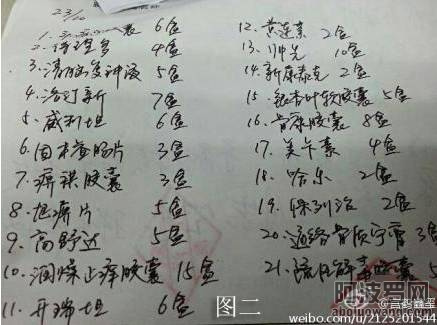 23/10
1. 囊 6盒
2. 4盒
3. 5盒
4. 治訂新 7盒
5. 威利坦 6盒
6. 固本益肠片 3盒
7. 癖祺胶囊 3盒
8. 片 5盒
9. 高舒达 5盒
10. 润燥止痒胶囊 15盒
11. 开瑞坦 6盒
12. 黄连素 2盒
13. 10盒
14. 新康泰克 2盒
15. 银杏叶软胶囊 5盒
16. 胶囊 8盒
17. 美卡素 4盒
18. 哈乐 2盒
19. 保列治 2盒
20. 通络骨质宁膏 3盒
21. 胶囊 5
图二
阿波罗网
aboluowang.com
weibo.com/u/2125201544